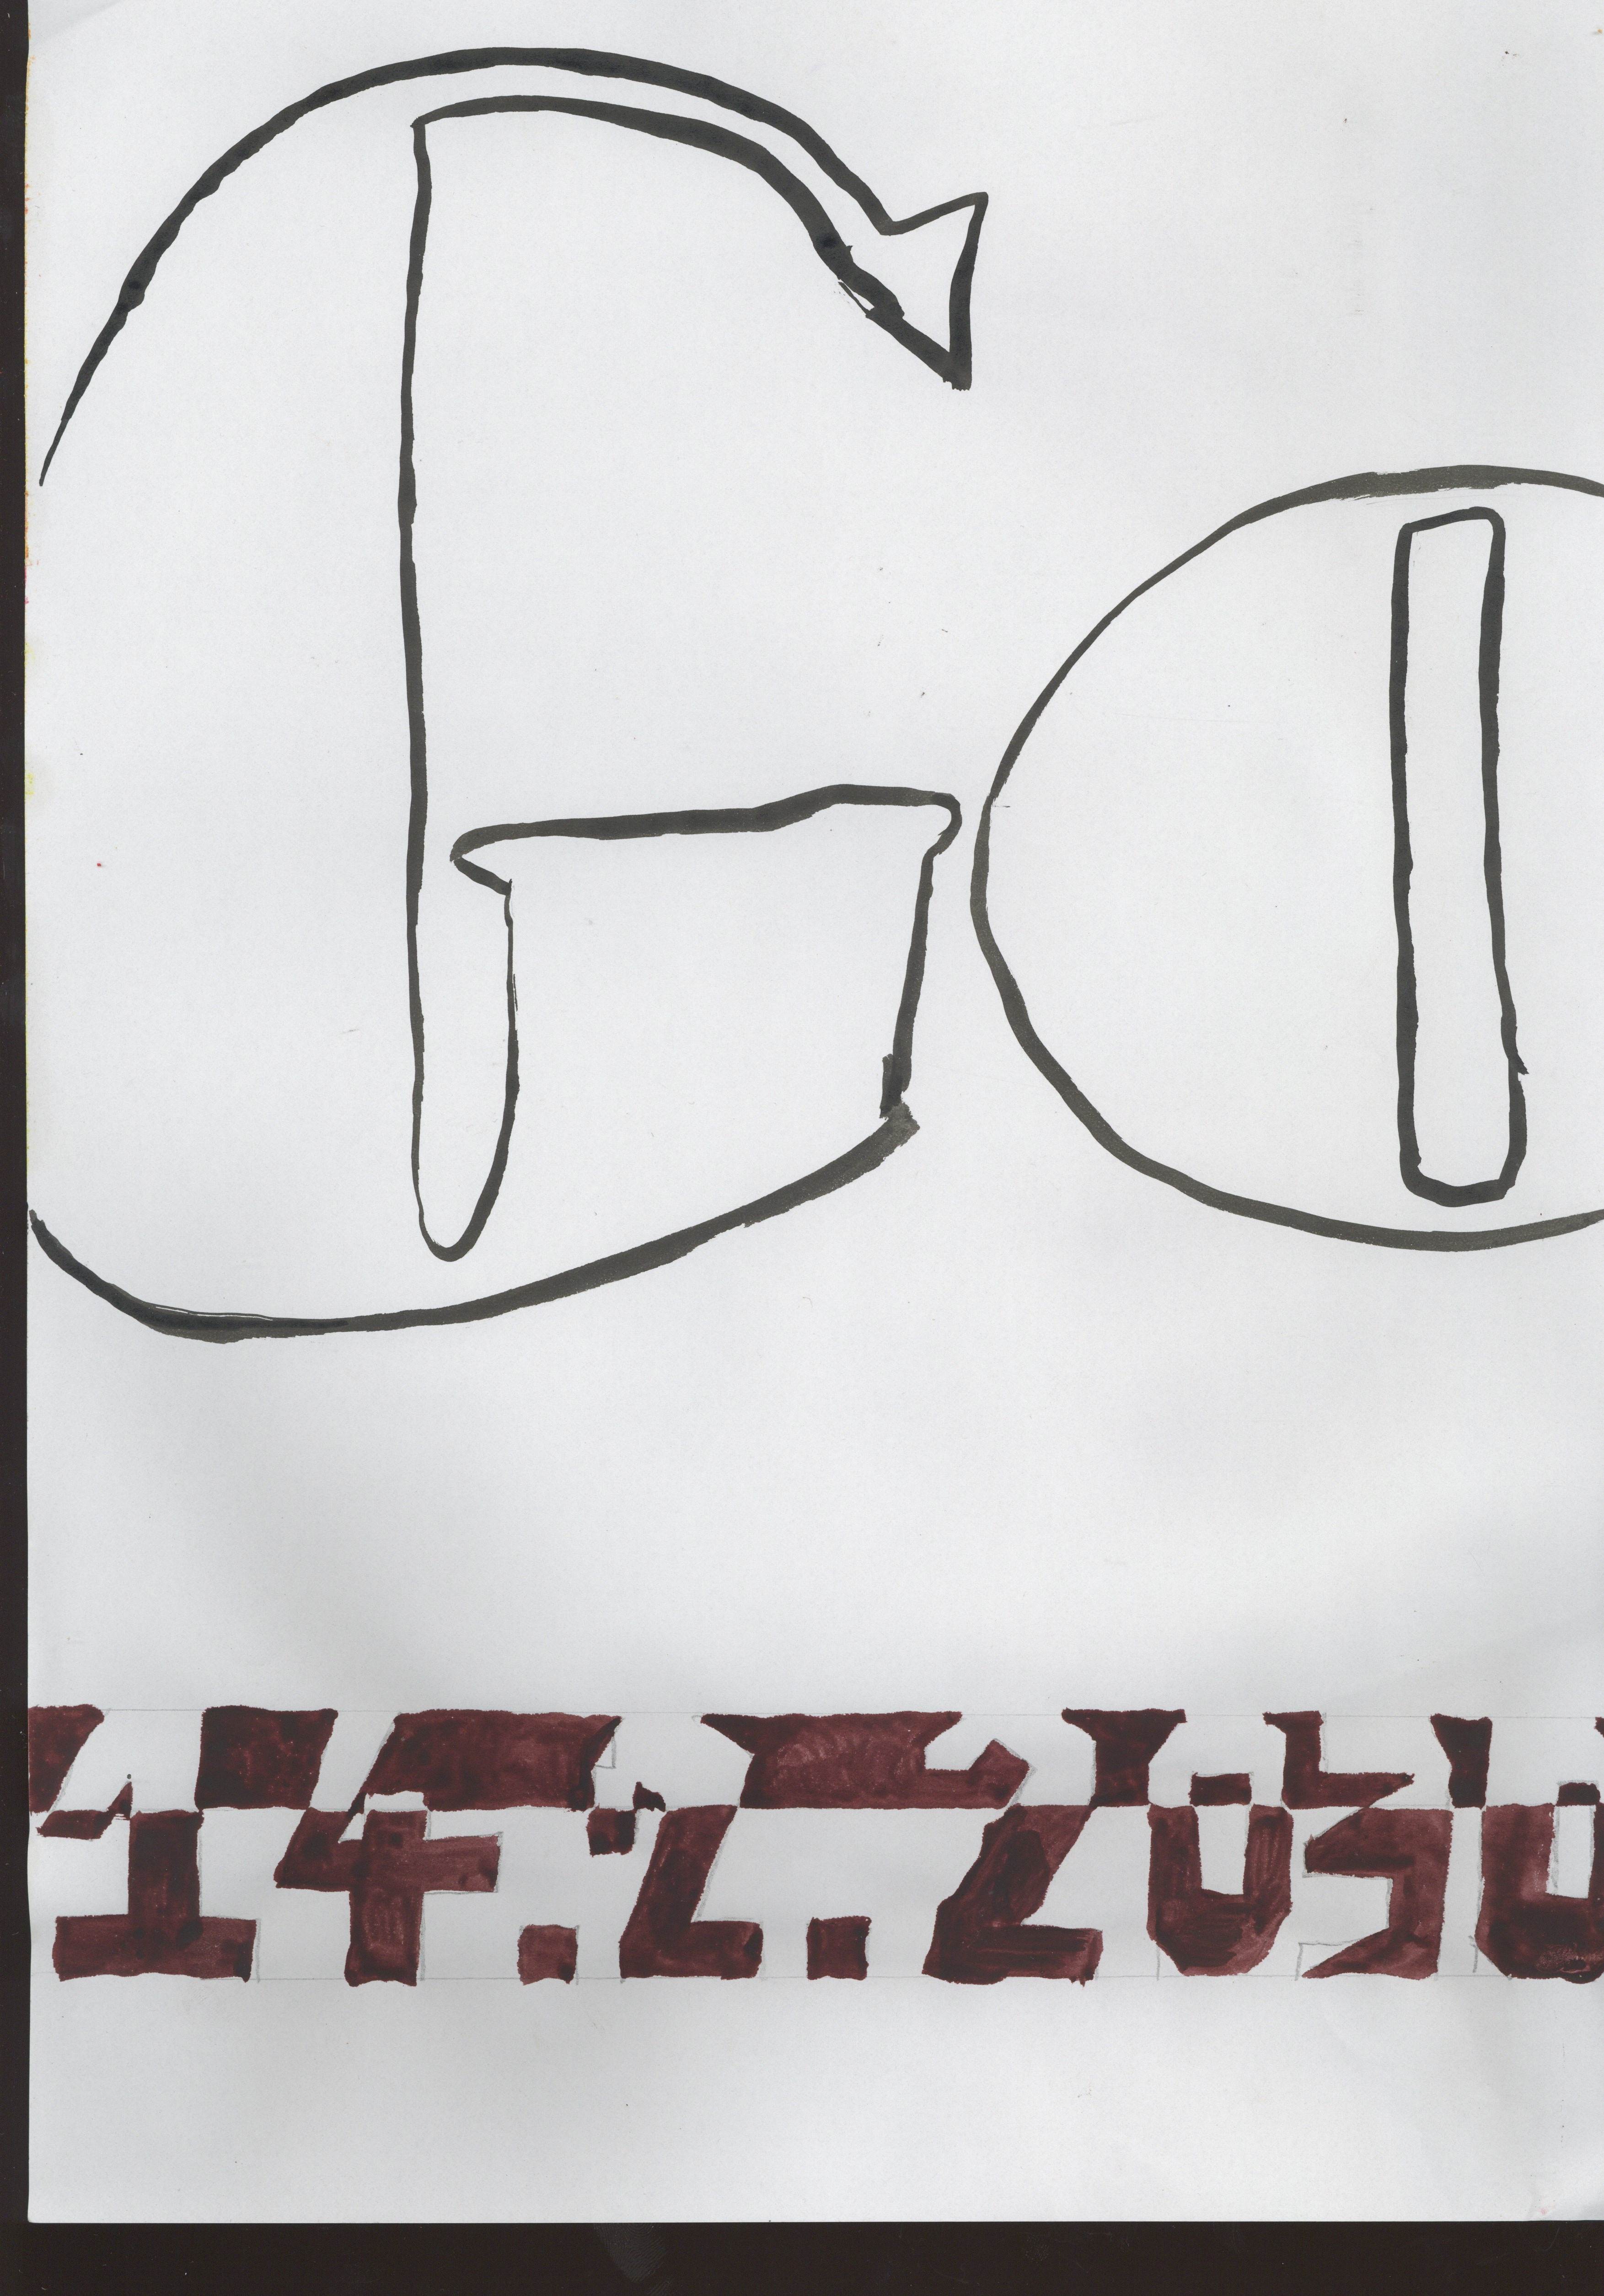 Go
14.2.2030